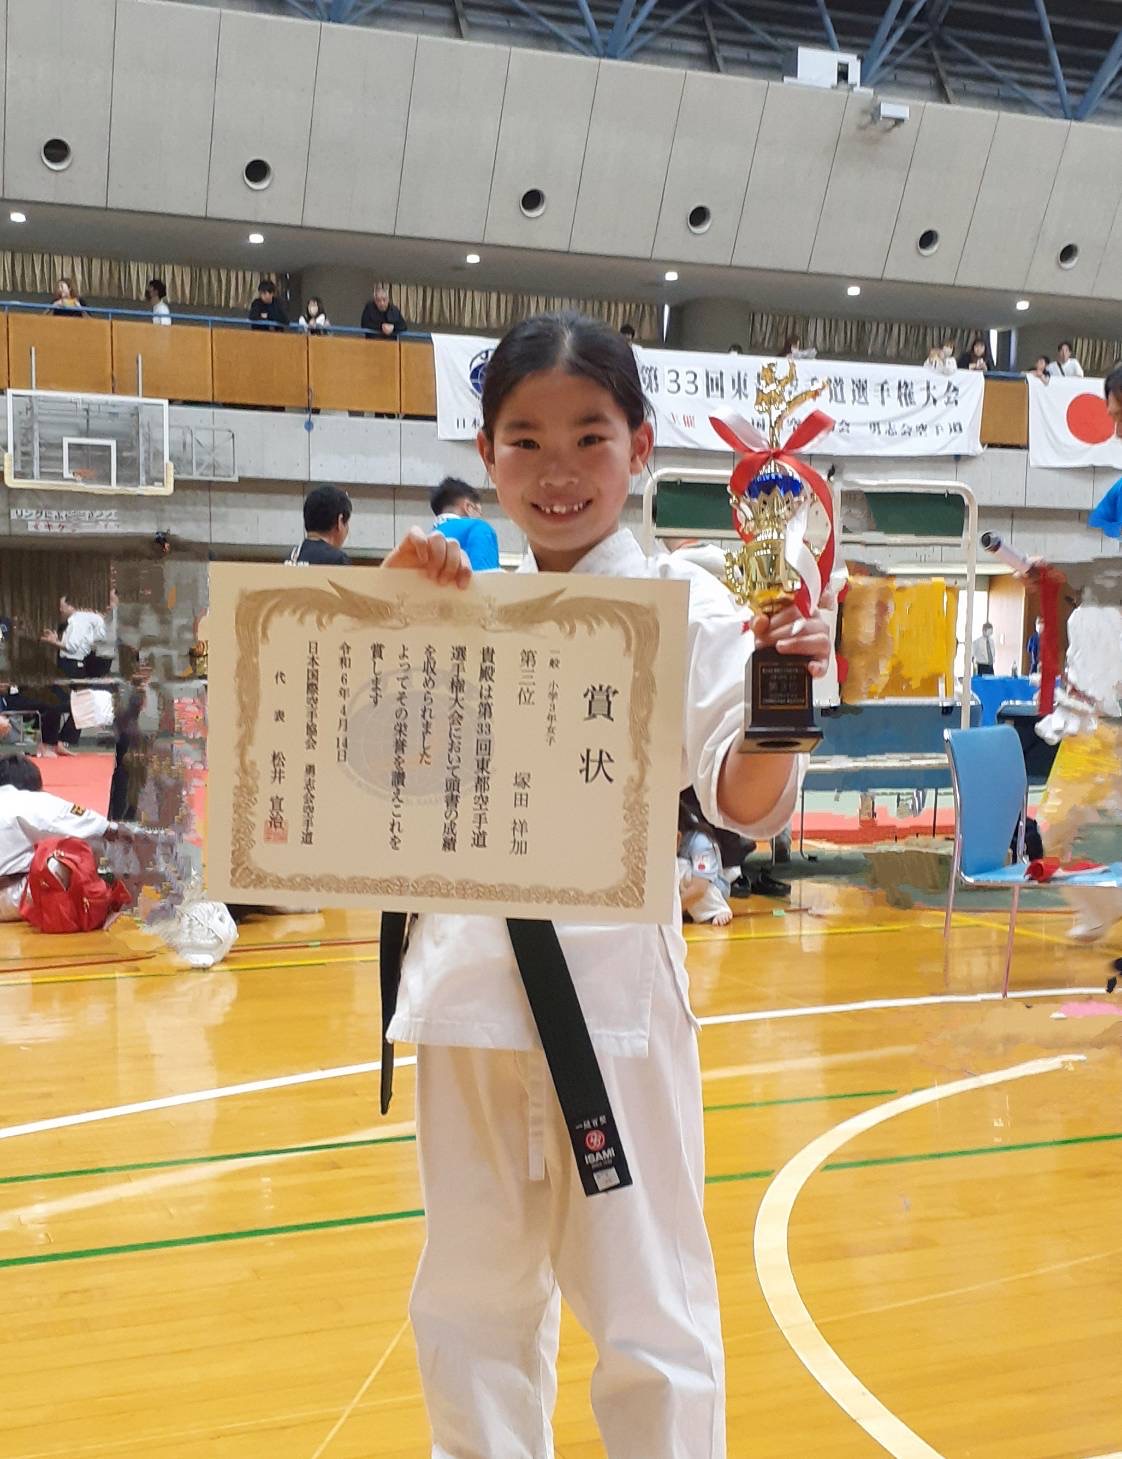 第33回東
手道選手権大会
日本
主催
勇志会空手道
賞状
一般 小学3年女子
第三位 塚田 祥加
貴殿は第33回東都空手道
選手権大会において頭書の成績
を収められました
よってその栄誉を讃えこれを
賞します
令和6年4月14日
日本国際空手協会 勇志会空手道
代表 松井 宣治
ISAMI